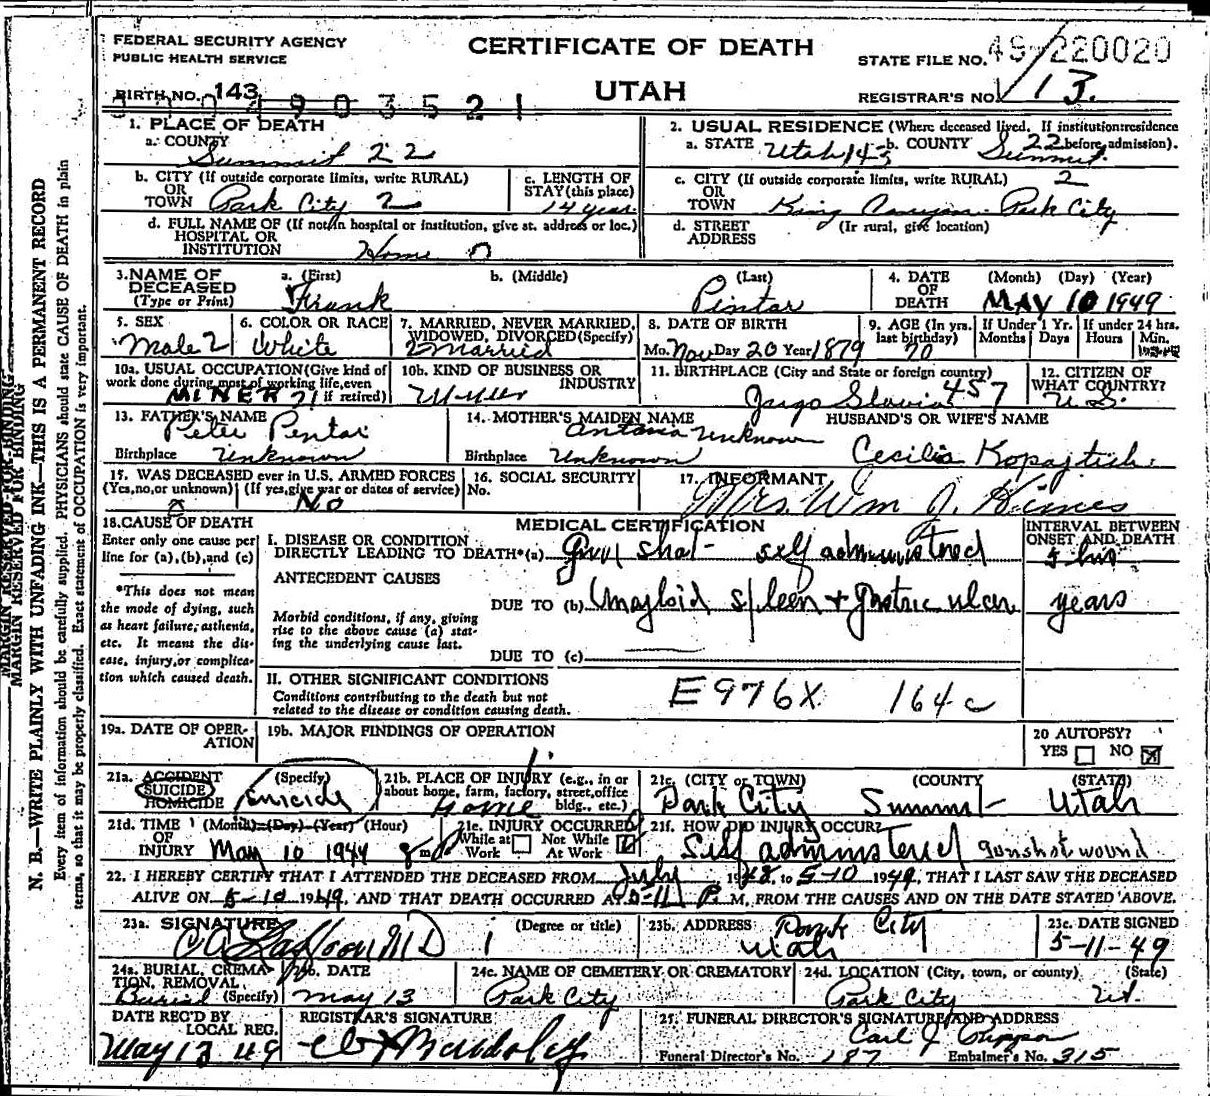 FEDERAL SECURITY AGENCY
PUBLIC HEALTH SERVICE
CERTIFICATE OF DEATH
UTAH
STATE FILE NO. 49-220020
REGISTRAR'S NO. 13.
BIRTH NO. 143
4903521
1. PLACE OF DEATH
a. COUNTY Summit 22
2. USUAL RESIDENCE (Where deceased lived. If institution: residence before admission).
a. STATE Utah 143 b. COUNTY Summit 22
b. CITY (If outside corporate limits, write RURAL) OR TOWN Park City 2
c. LENGTH OF STAY (this place) 14 years
c. CITY (If outside corporate limits, write RURAL) OR TOWN King Canyon - Park City 2
d. FULL NAME OF (If not in hospital or institution, give st. address or loc.) HOSPITAL OR INSTITUTION Home 0
d. STREET ADDRESS (If rural, give location)
3. NAME OF DECEASED (Type or Print)
a. (First) Frank
b. (Middle)
(Last) Pintar
4. DATE OF DEATH (Month) (Day) (Year) MAY 10 1949
5. SEX Male 2
6. COLOR OR RACE White
7. MARRIED, NEVER MARRIED, WIDOWED, DIVORCED (Specify) 2 Married
8. DATE OF BIRTH Mo. Nov Day 20 Year 1879
9. AGE (In yrs. last birthday) 70
If Under 1 Yr. Months Days
If under 24 hrs. Hours Min.
10a. USUAL OCCUPATION (Give kind of work done during most of working life, even if retired) MINER 71
10b. KIND OF BUSINESS OR INDUSTRY
11. BIRTHPLACE (City and State or foreign country) Jugo Slavia 457
12. CITIZEN OF WHAT COUNTRY? U.S.
13. FATHER'S NAME Peter Pentar
Birthplace Unknown
14. MOTHER'S MAIDEN NAME Antonia Unknown
Birthplace Unknown
HUSBAND'S OR WIFE'S NAME
Cecilia
15. WAS DECEASED ever in U.S. ARMED FORCES
(Yes, no, or unknown) (If yes, give war or dates of service) No
16. SOCIAL SECURITY No.
17. INFORMANT Mrs. Wm J. Himes
18. CAUSE OF DEATH
Enter only one cause per line for (a), (b), and (c)
*This does not mean the mode of dying, such as heart failure, asthenia, etc. It means the disease, injury, or complication which caused death.
MEDICAL CERTIFICATION
INTERVAL BETWEEN ONSET AND DEATH
I. DISEASE OR CONDITION DIRECTLY LEADING TO DEATH* (a) Gun shot - self administered hrs.
ANTECEDENT CAUSES
Morbid conditions, if any, giving rise to the above cause (a) stating the underlying cause last.
DUE TO (b) spleen + gastric ulcer years
DUE TO (c)
II. OTHER SIGNIFICANT CONDITIONS
Conditions contributing to the death but not related to the disease or condition causing death.
E976X 164c
19a. DATE OF OPERATION
19b. MAJOR FINDINGS OF OPERATION
20 AUTOPSY? YES NO X
21a. ACCIDENT SUICIDE HOMICIDE (Specify) suicide
21b. PLACE OF INJURY (e.g., in or about home, farm, factory, street, office bldg., etc.) Home
21c. (CITY or TOWN) (COUNTY) (STATE)
Park City Summit Utah
21d. TIME OF INJURY (Month) (Day) (Year) (Hour) May 10 1949 8 m.
21e. INJURY OCCURRED While at Work Not While At Work
21f. HOW DID INJURY OCCUR? Self administered gunshot wound
22. I HEREBY CERTIFY THAT I ATTENDED THE DECEASED FROM July 1948, to 5-10 1949, THAT I LAST SAW THE DECEASED
ALIVE ON 5-10 1949, AND THAT DEATH OCCURRED AT 11 P. M., FROM THE CAUSES AND ON THE DATE STATED ABOVE.
23a. SIGNATURE MD (Degree or title)
23b. ADDRESS Park City Utah
23c. DATE SIGNED 5-11-49
24a. BURIAL, CREMATION, REMOVAL (Specify) Burial
24b. DATE May 13
24c. NAME OF CEMETERY OR CREMATORY Park City
24d. LOCATION (City, town, or county) (State) Park City Ut.
DATE REC'D BY LOCAL REG. May 13 49
REGISTRAR'S SIGNATURE
25. FUNERAL DIRECTOR'S SIGNATURE AND ADDRESS
Carl J
Funeral Director's No. 187 Embalmer's No. 315
MARGIN RESERVED FOR BINDING
N. B.—WRITE PLAINLY WITH UNFADING INK—THIS IS A PERMANENT RECORD
Every item of information should be carefully supplied. PHYSICIANS should state CAUSE OF DEATH in plain
terms, so that it may be properly classified. Exact statement of OCCUPATION is very important.